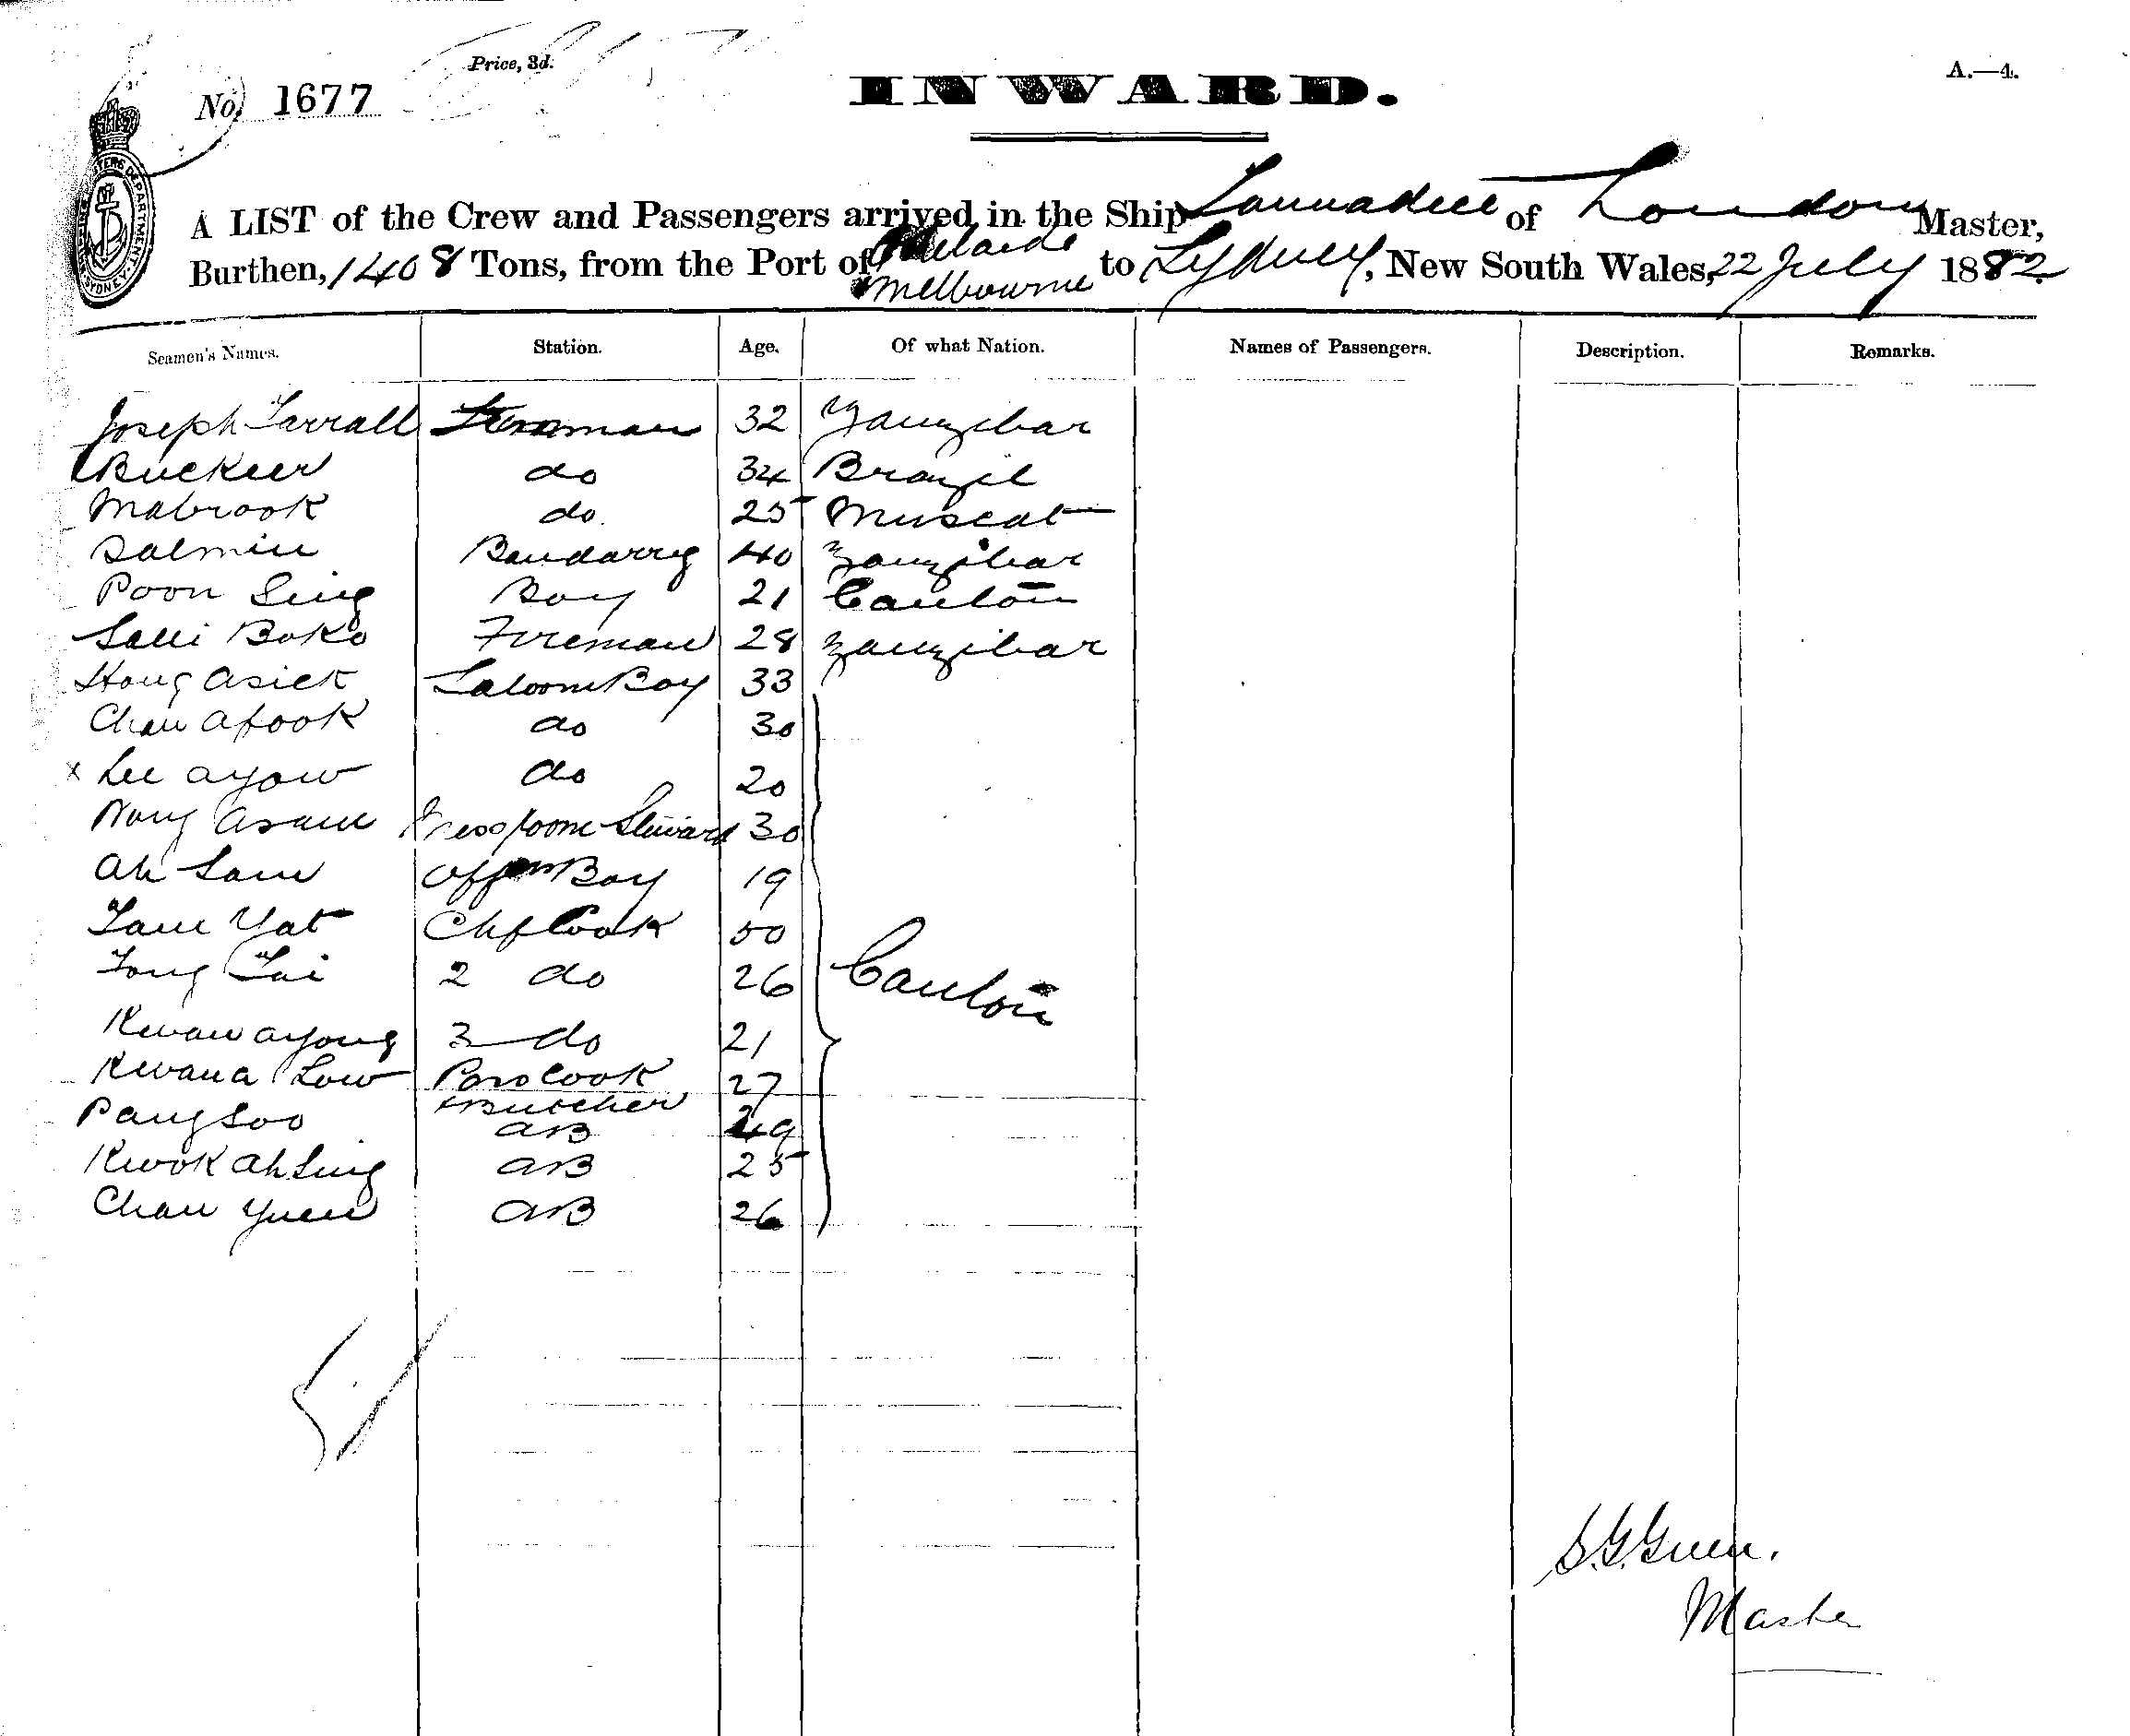 Price, 3d.
A.—4.
No. 1677
INWARD.
A LIST of the Crew and Passengers arrived in the Ship Tannadice of London Master,
Burthen, 1408 Tons, from the Port of Adelaide Melbourne to Sydney, New South Wales, 22 July 1882
Seamen's Names. Station. Age. Of what Nation. Names of Passengers. Description. Remarks.
Joseph Farrall Fireman 32 Zanzibar
Buckeer do 34 Brazil
Mabrook do 25 Muscat
Salmin Bandarry 40 Zanzibar
Poon Sing Boy 21 Canton
Boko Fireman 28 Zanzibar
Hong Asick Saloon Boy 33
Chan Afook do 30
x Lee ayow do 20
Wong Asam Steward 30
Ah Sam Boy 19
Tam Yat Chf Cook 50
Tong Tai 2 do 26 Canton
Kwan ayong 3 do 21
Kwan a Low Cook 27
& Butcher
Pang Soo AB 49
Kwok Ah Sing AB 25
Chan Yuen AB 26
S.G. Green.
Master